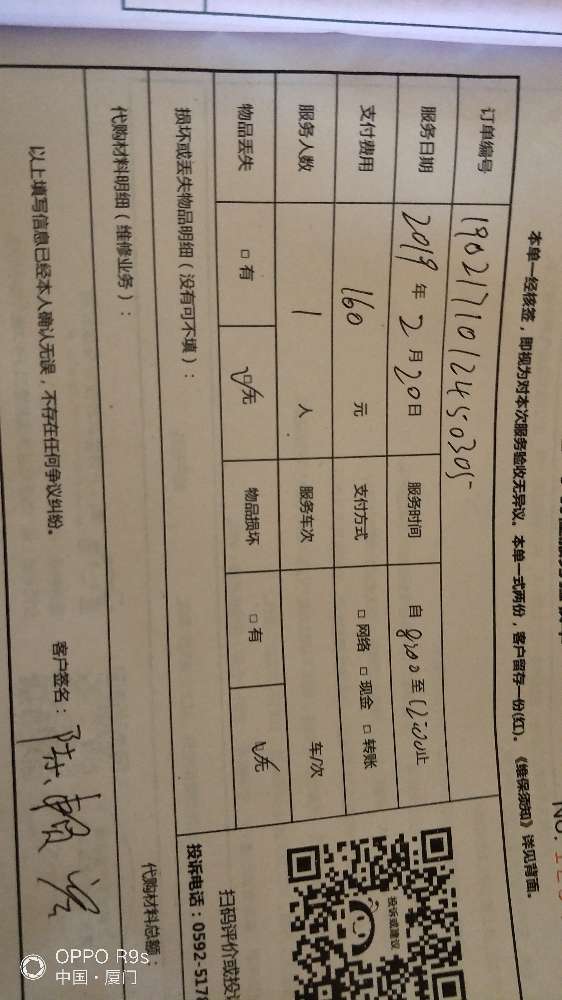 本单一经核签，即视为对本次服务验收无异议。本单一式两份，客户留存一份(红)。《维保须知》详见背面。
订单编号 1902171012450305
服务日期 2019年2月20日 服务时间 自8:00至12:00止
支付费用 160 元 支付方式 □ 网络 □ 现金 □ 转账
服务人数 1 人 服务车次 车/次
物品丢失 □ 有 无 物品损坏 □ 有 无
损坏或丢失物品明细（没有可不填）：
代购材料明细（维修业务）：
代购材料总额：
以上填写信息已经本人确认无误，不存在任何争议纠纷。
客户签名：陈
投诉或建议
扫码评价或投
投诉电话：0592-5178
OPPO R9s
中国·厦门